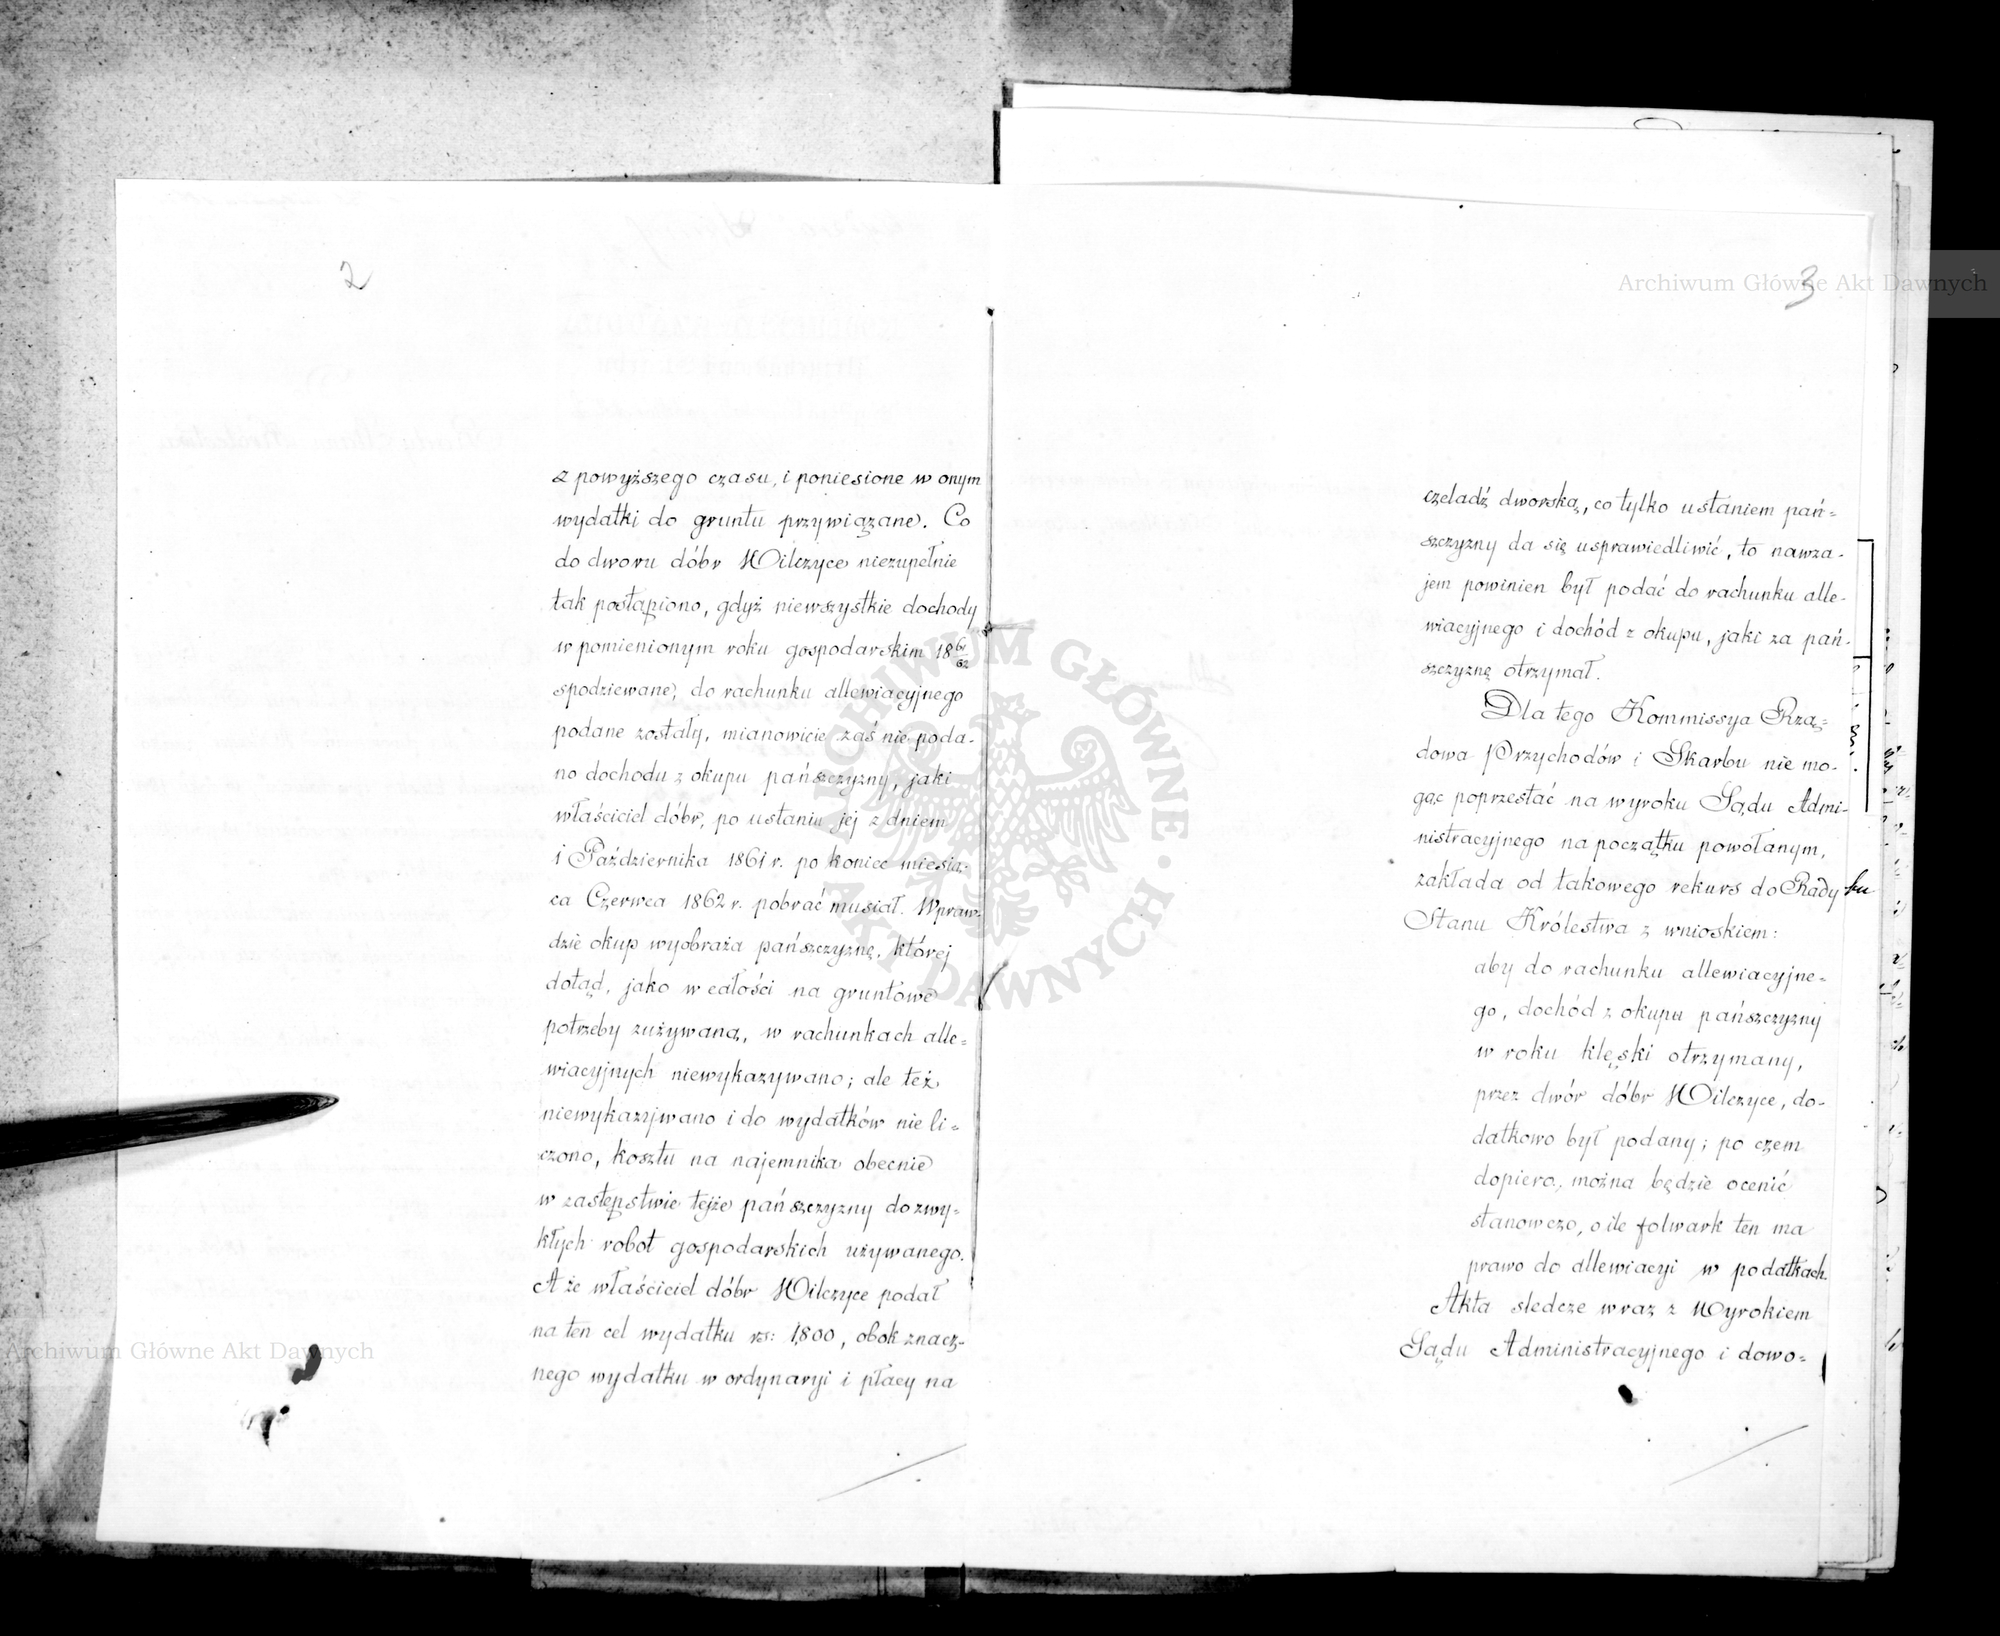 2
z powyższego czasu, i poniesione w onym
wydatki do gruntu przywiązane. Co
do dworu dóbr Wilczyce niezupełnie
tak postąpiono, gdyż niewszystkie dochody
w pomienionym roku gospodarskim 18 61/62
spodziewane, do rachunku allewiacyjnego
podane zostały, mianowicie zaś nie poda-
no dochodu z okupu pańszczyzny, jaki
właściciel dóbr, po ustaniu jej z dniem
1 Października 1861 r. po koniec miesią-
ca Czerwca 1862 r. pobrać musiał. Wpraw-
dzie okup wyobraża pańszczyznę, której
dotąd, jako w całości na gruntowe
potrzeby zużywaną, w rachunkach alle=
wiacyjnych niewykazywano; ale też
niewykazywano i do wydatków nie li=
czono, kosztu na najemnika obecnie
w zastępstwie tejże pańszczyzny do zwy-
kłych robot gospodarskich używanego.
A że właściciel dóbr Wilczyce podał
na ten cel wydatku rs: 1,800, obok znacz-
nego wydatku w ordynaryi i płacy na
3
czeladź dworską, co tylko ustaniem pań=
szczyzny da się usprawiedliwić, to nawza-
jem powinien był podać do rachunku alle-
wiacyjnego i dochód z okupu, jaki za pań-
szczyznę otrzymał.
Dla tego Kommissya Rzą=
dowa Przychodów i Skarbu nie mo-
gąc poprzestać na wyroku Sądu Admi-
nistracyjnego na początku powołanym,
zakłada od takowego rekurs do Rady
Stanu Królestwa z wnioskiem:
aby do rachunku allewiacyjne=
go, dochód z okupu pańszczyzny
w roku klęski otrzymany,
przez dwór dóbr Wilczyce, do-
datkowo był podany; po czem
dopiero, można będzie ocenić
stanowczo, o ile folwark ten ma
prawo do allewiacyi w podatkach.
Akta śledcze wraz z Wyrokiem
Sądu Administracyjnego i dowo=
Archiwum Główne Akt Dawnych
Archiwum Główne Akt Dawnych
ARCHIWUM GŁÓWNE • AKT DAWNYCH •